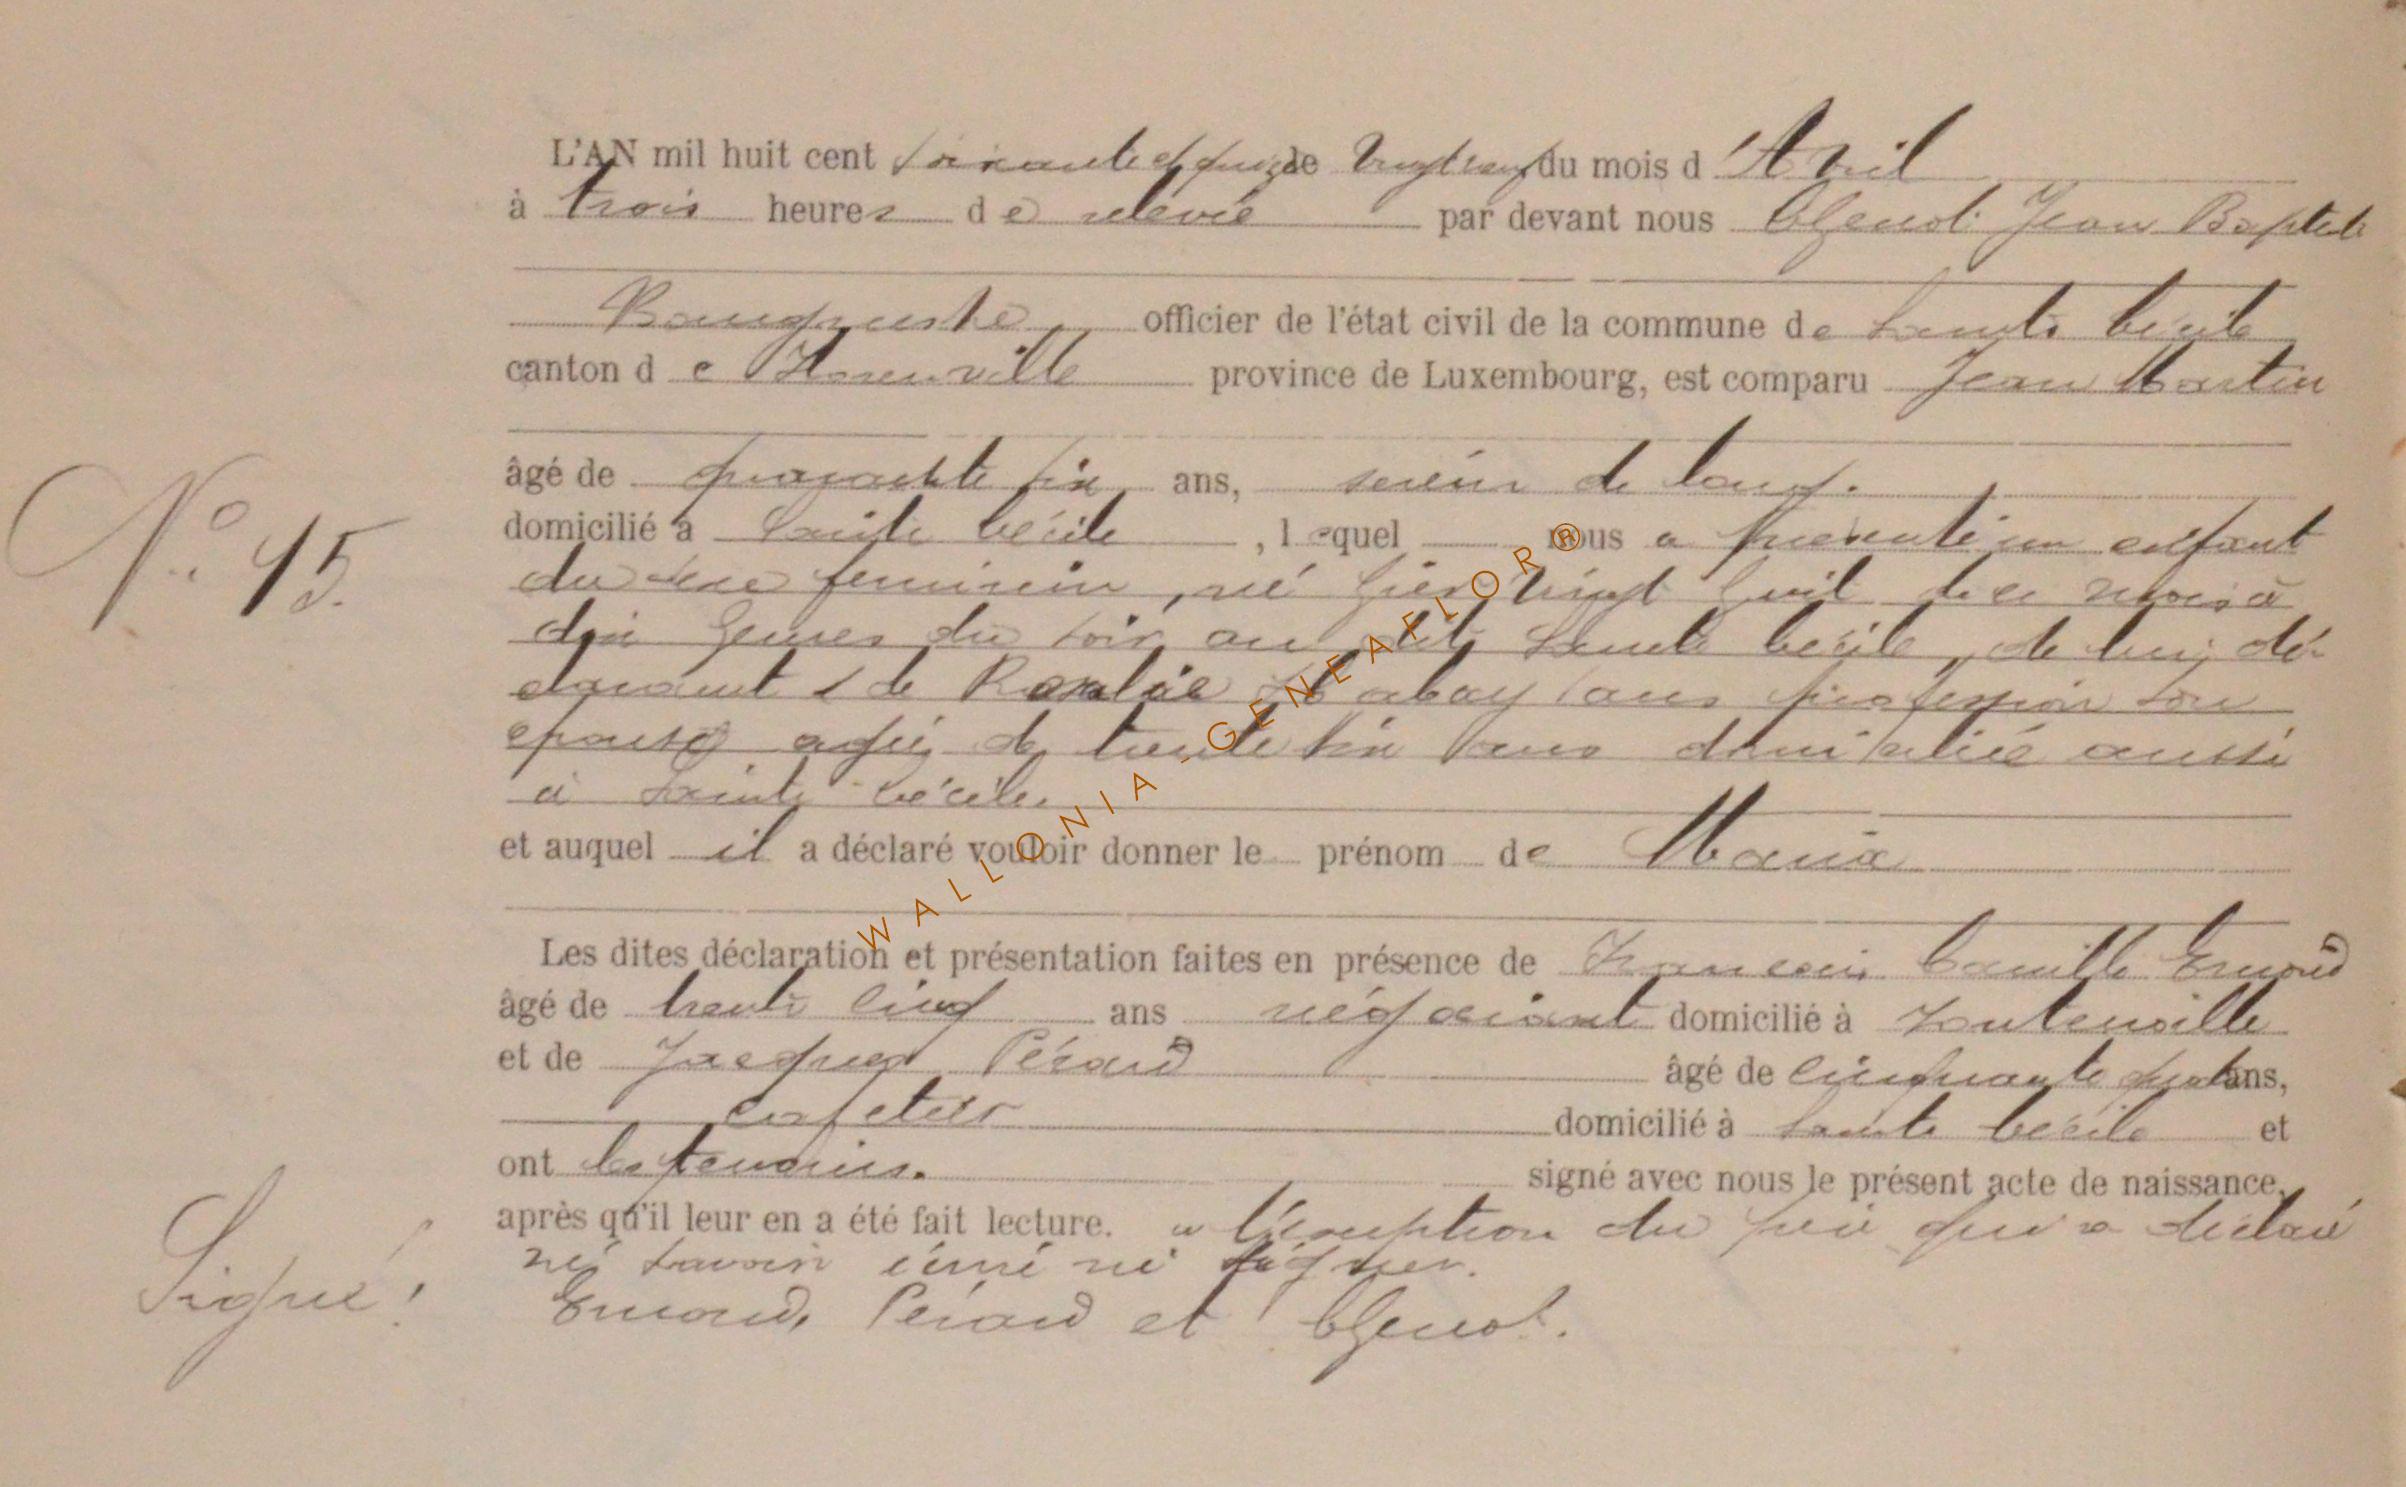 L'AN mil huit cent soixante et quinze le Vingt neuf du mois d'Avril
à trois heures de relevée par devant nous Chenot Jean Baptiste
officier de l'état civil de la commune de Sainte Cécile
canton de Florenville province de Luxembourg, est comparu Jean Martin
âgé de quarante six ans, scieur de long.
domicilié à Sainte Cécile, lequel nous a présenté un enfant
du sexe feminin, né hier Vingt huit de ce mois à
dix heures du soir, au dit Sainte Cécile, de lui dé-
clarant & de Rosalie Habay sans profession son
épouse agée de trente six ans domiciliée aussi
à Sainte Cécile.
et auquel il a déclaré vouloir donner le prénom de Maria
Les dites déclaration et présentation faites en présence de Francois Camille Emond
âgé de trente cinq ans négociant domicilié à Fontenoille
et de Jacques Pérard âgé de cinquante quatre ans,
domicilié à Sainte Cécile et
ont les temoins. signé avec nous le présent acte de naissance,
après qu'il leur en a été fait lecture. a l'éxception du père qui a déclaré
né savoir écrire ni signer.
Emond, Pérard et Chenot.
N° 15.
Signé !
WALLONIA - GENEAFLOR ®